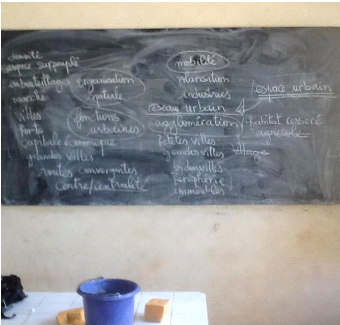 densité
espace surpeuplé
embouteillages
marché
villes
Ports
Capitale économique
grandes villes
routes convergentes
centre/centralité
organisation
spatiale
fonctions
urbaines
mobilité
plantation
industries
réseau urbain
agglomération
petites villes
grandes villes
bidonvilles
périphérie
immeubles
l'espace urbain
habitat resserré
agricole
village